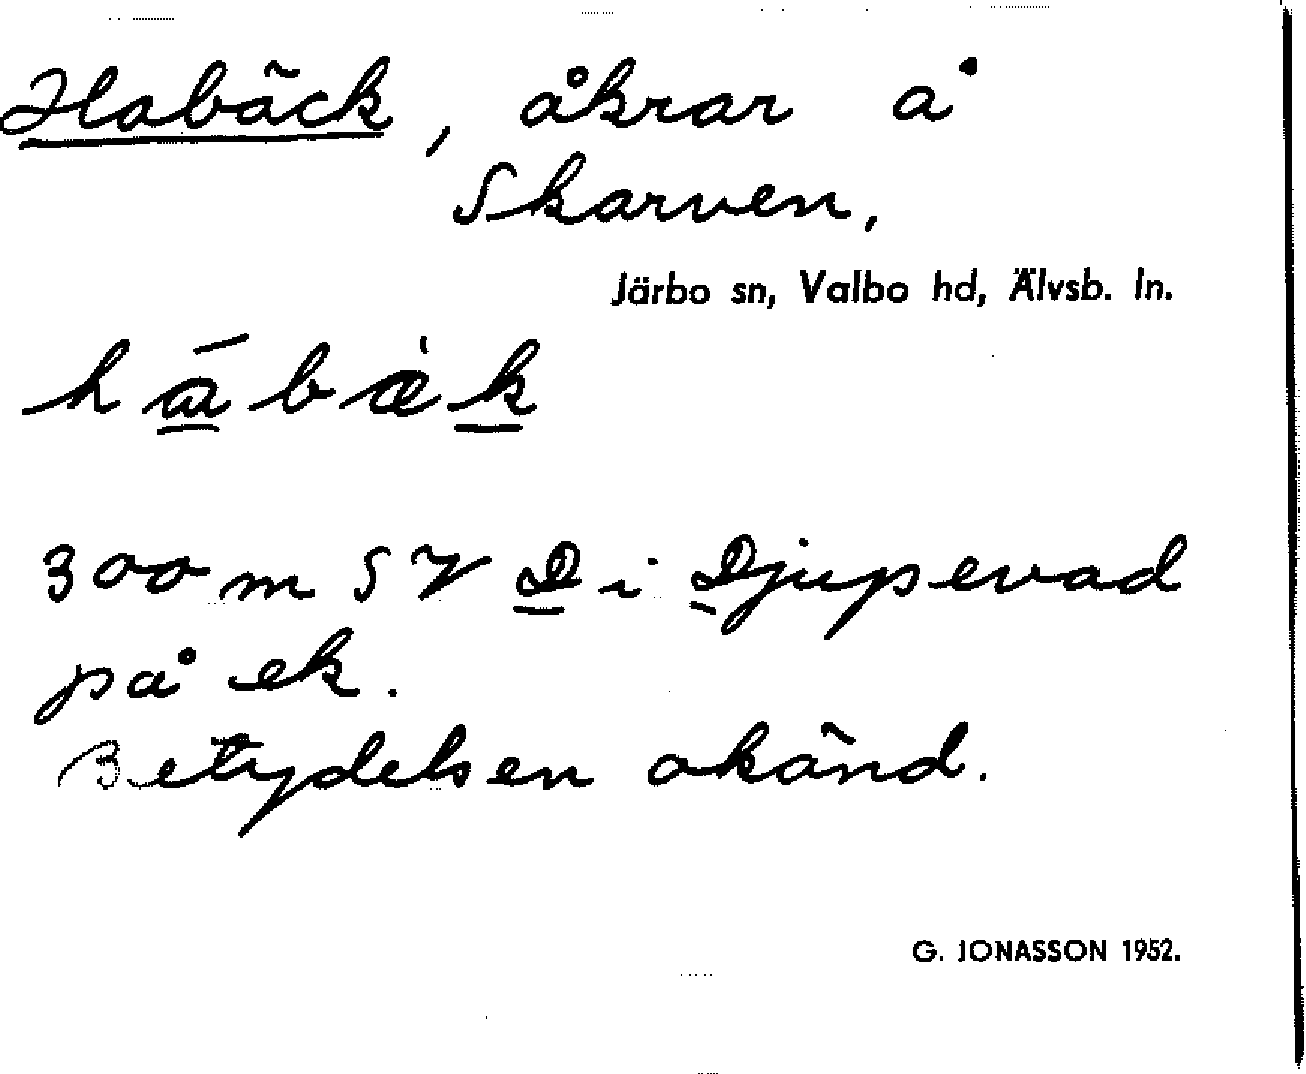 Habäck, åkrar å
Skarven,
Järbo sn, Valbo hd, Älvsb. ln.
hábæ̀k
300 m SV D i Djupevad
på ek.
Betydelsen okänd.
G. JONASSON 1952.